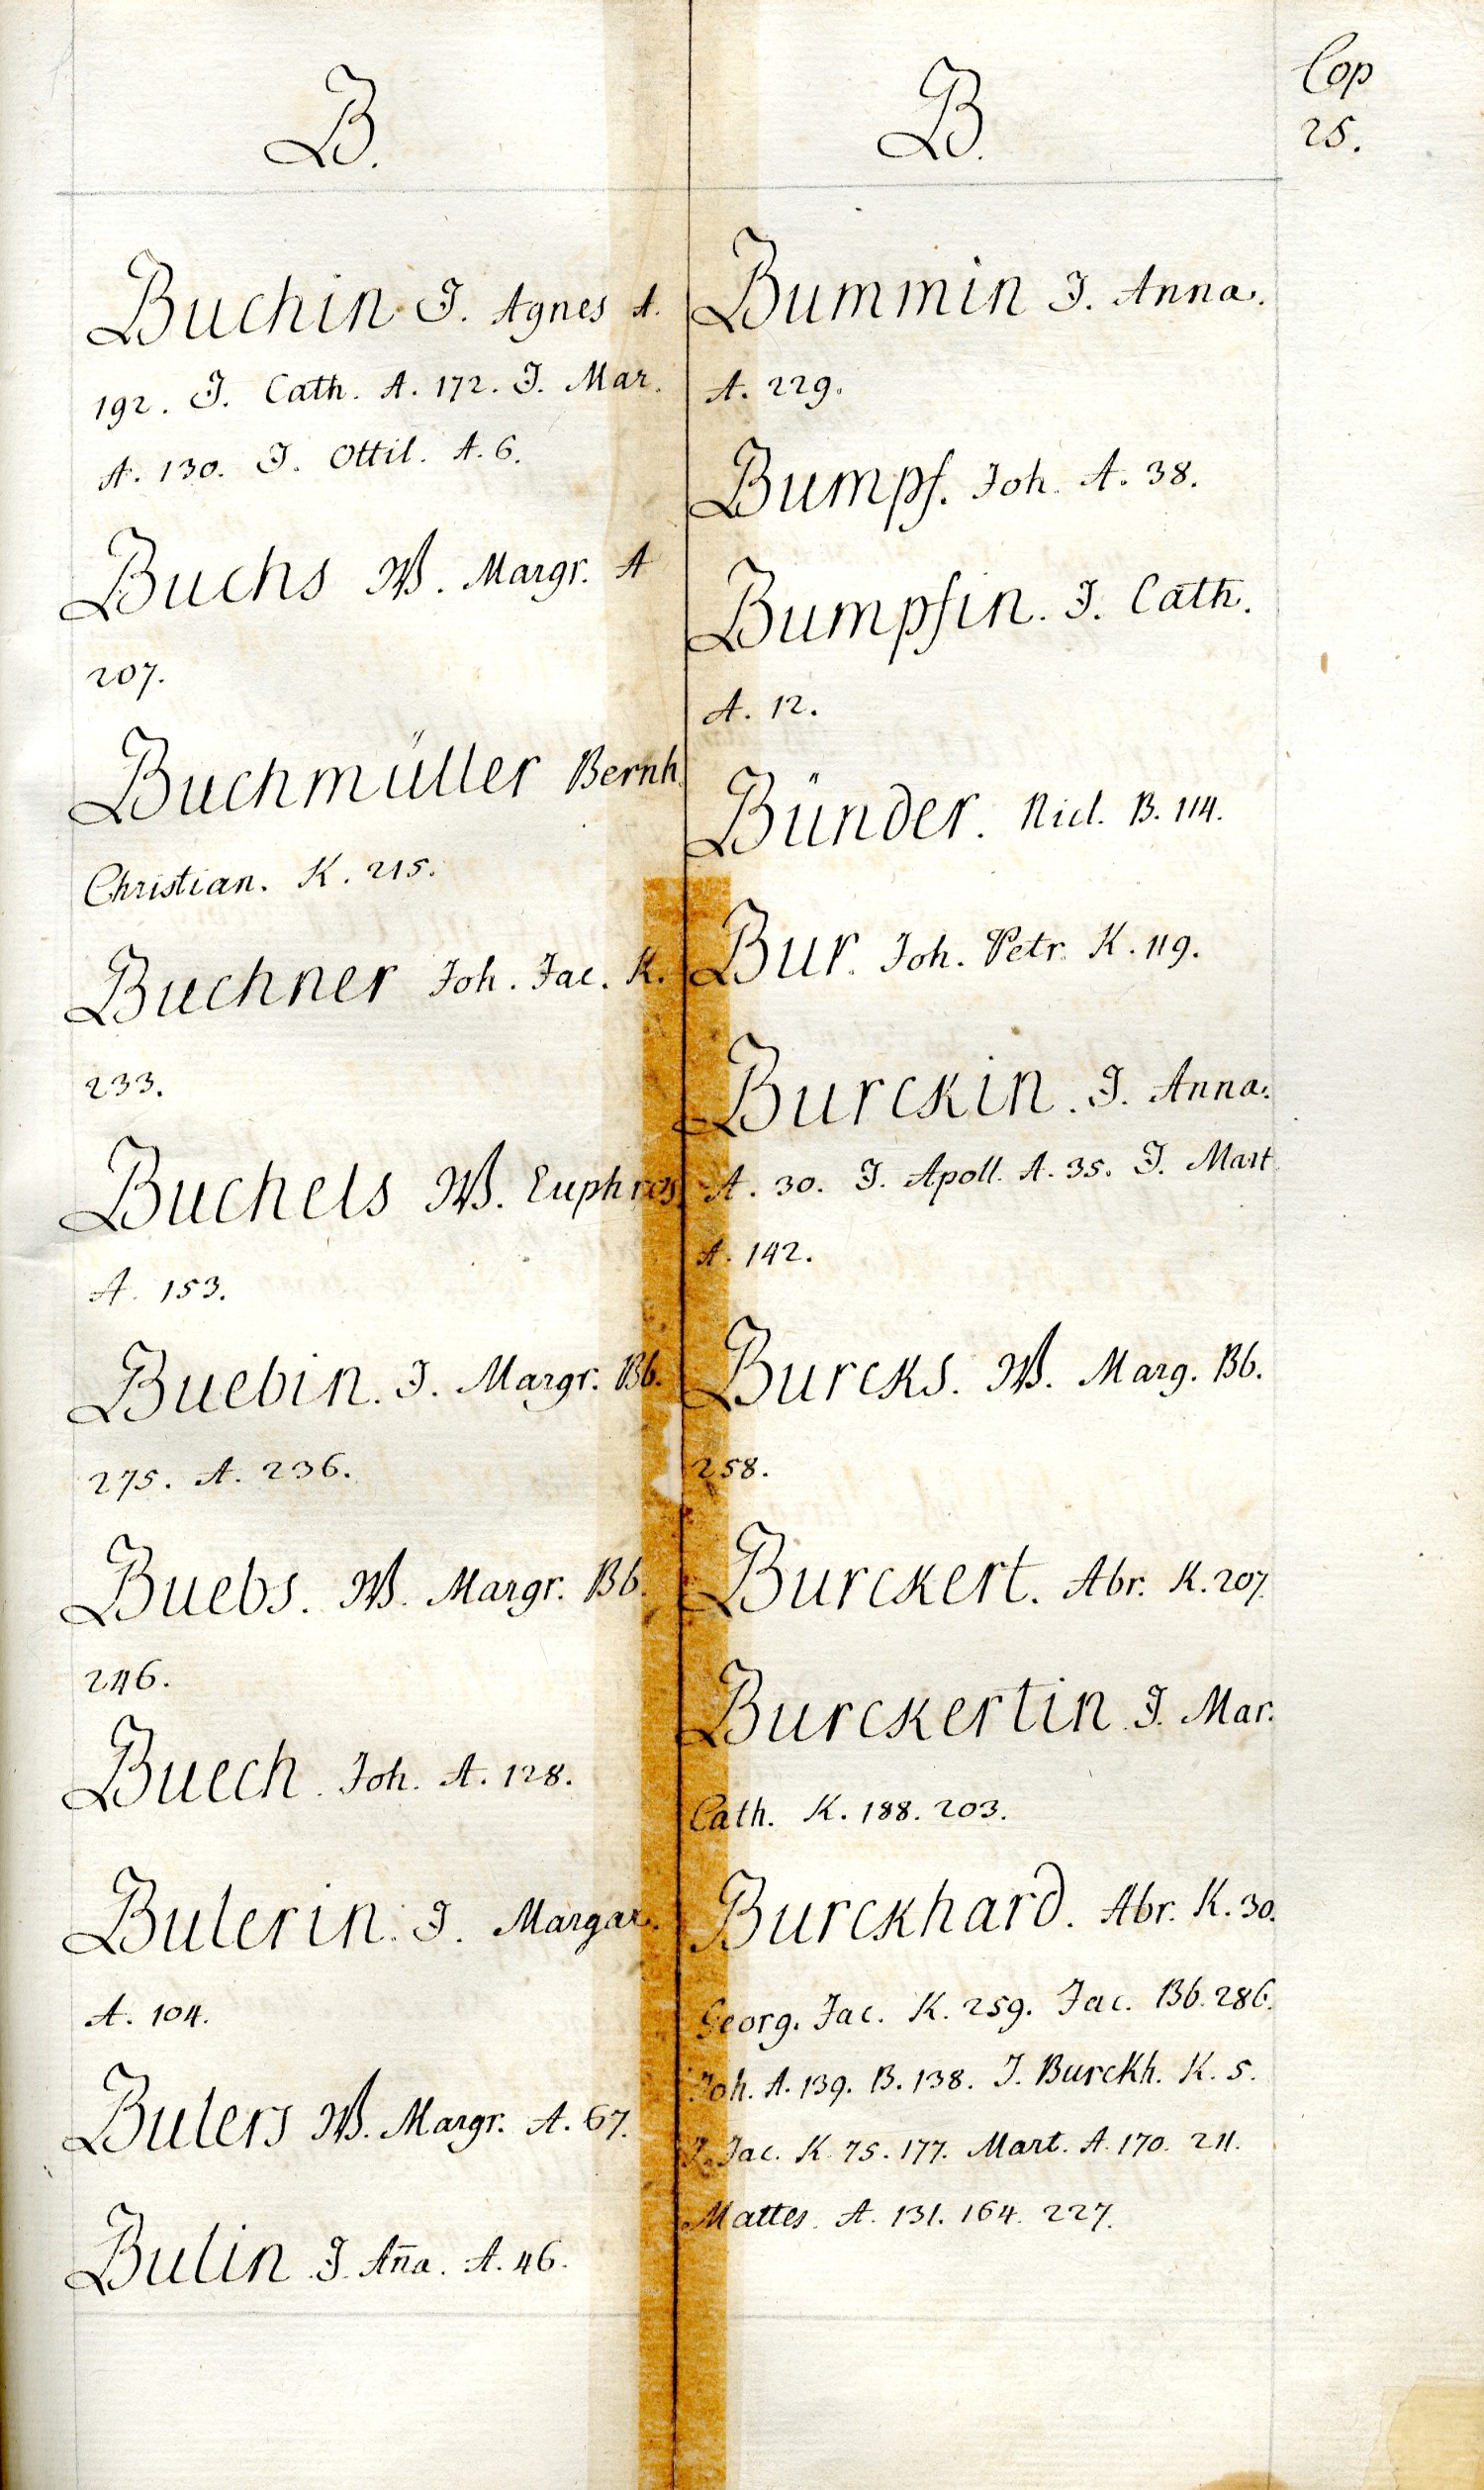 Cop
25.
B.
Buchin J. Agnes A.
192. J. Cath. A. 172. J. Mar.
A. 130. J. Ottil. A. 6.
Buchs W. Margr. A
207.
Buchmüller Bernh.
Christian. K. 215.
Buchner Joh. Jac. K.
233.
Buchels W. Euphros.
A. 153.
Buebin. J. Margr. Bb.
275. A. 236.
Buebs. W. Margr. Bb.
246.
Buech. Joh. A. 128.
Bulerin. J. Margar.
A. 104.
Bulers W. Margr. A. 67.
Bulin J. An̄a. A. 46.
B.
Bummin J. Anna.
A. 229.
Bumpf. Joh. A. 38.
Bumpfin. J. Cath.
A. 12.
Bünder. Nicl. B. 114.
Bur. Joh. Petr. K. 119.
Burckin. J. Anna.
A. 30. J. Apoll. A. 35. J. Mart.
A. 142.
Burcks. W. Marg. Bb.
258.
Burckert. Abr. K. 207.
Burckertin J. Mar.
Cath. K. 188. 203.
Burckhard. Abr. K. 30.
Georg. Jac. K. 259. Jac. Bb. 286.
Joh. A. 139. B. 138. J. Burckh. K. 5.
J. Jac. K. 75. 177. Mart. A. 170. 211.
Mattes. A. 131. 164. 227.